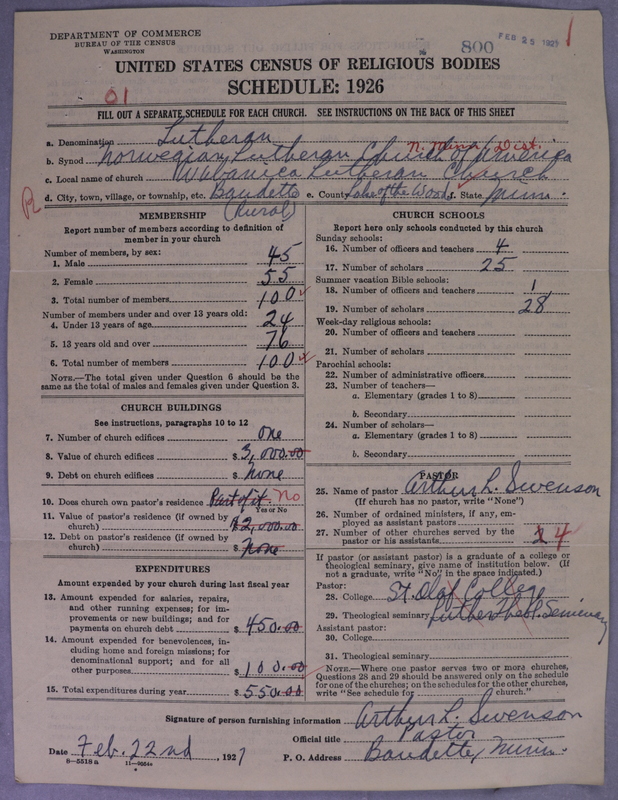 DEPARTMENT OF COMMERCE
BUREAU OF THE CENSUS
WASHINGTON
800
FEB 25 1927
1
UNITED STATES CENSUS OF RELIGIOUS BODIES
SCHEDULE: 1926
01
FILL OUT A SEPARATE SCHEDULE FOR EACH CHURCH. SEE INSTRUCTIONS ON THE BACK OF THIS SHEET
a. Denomination Lutheran
N. Minn. Dist.
b. Synod Norwegian Lutheran Church of America
c. Local name of church Wabanica Lutheran Church
R
d. City, town, village, or township, etc. Baudette e. County Lake of the Woods f. State Minn.
(Rural)
MEMBERSHIP
Report number of members according to definition of
member in your church
Number of members, by sex:
1. Male 45
2. Female 55
3. Total number of members 100
Number of members under and over 13 years old:
4. Under 13 years of age 24
5. 13 years old and over 76
6. Total number of members 100
NOTE.—The total given under Question 6 should be the
same as the total of males and females given under Question 3.
CHURCH BUILDINGS
See instructions, paragraphs 10 to 12
7. Number of church edifices one
8. Value of church edifices $ 3,000.00
9. Debt on church edifices $ none
10. Does church own pastor's residence Part of it. No
Yes or No
11. Value of pastor's residence (if owned by
church) $ 2,000.00
12. Debt on pastor's residence (if owned by
church) $ none
EXPENDITURES
Amount expended by your church during last fiscal year
13. Amount expended for salaries, repairs,
and other running expenses; for im-
provements or new buildings; and for
payments on church debt $ 450.00
14. Amount expended for benevolences, in-
cluding home and foreign missions; for
denominational support; and for all
other purposes $ 100.00
15. Total expenditures during year $ 550.00
CHURCH SCHOOLS
Report here only schools conducted by this church
Sunday schools:
16. Number of officers and teachers 4
17. Number of scholars 25
Summer vacation Bible schools:
18. Number of officers and teachers 1
19. Number of scholars 28
Week-day religious schools:
20. Number of officers and teachers
21. Number of scholars
Parochial schools:
22. Number of administrative officers
23. Number of teachers—
a. Elementary (grades 1 to 8)
b. Secondary
24. Number of scholars—
a. Elementary (grades 1 to 8)
b. Secondary
PASTOR
25. Name of pastor Arthur L. Swenson
(If church has no pastor, write "None")
26. Number of ordained ministers, if any, em-
ployed as assistant pastors
27. Number of other churches served by the
pastor or his assistants 4
If pastor (or assistant pastor) is a graduate of a college or
theological seminary, give name of institution below. (If
not a graduate, write "No" in the space indicated.)
Pastor:
28. College St. Olaf College
29. Theological seminary Luther Theol. Seminary
Assistant pastor:
30. College
31. Theological seminary
NOTE.—Where one pastor serves two or more churches,
Questions 28 and 29 should be answered only on the schedule
for one of the churches; on the schedules for the other churches,
write "See schedule for church."
Signature of person furnishing information Arthur L. Swenson
Official title Pastor
Date Feb. 22nd, 1927 P. O. Address Baudette, Minn.
8—5518a 11—9054